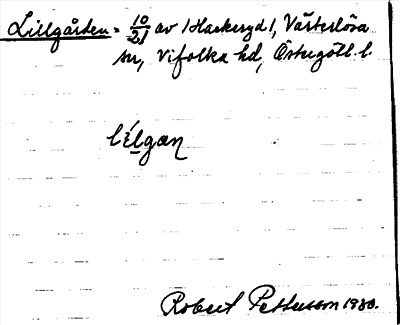 Lillgården = 10/21 av 1 Hackeryd 1, Västerlösa
sn, Vifolka hd, Östergötl. l.
lílgan
Robert Pettersson 1930.